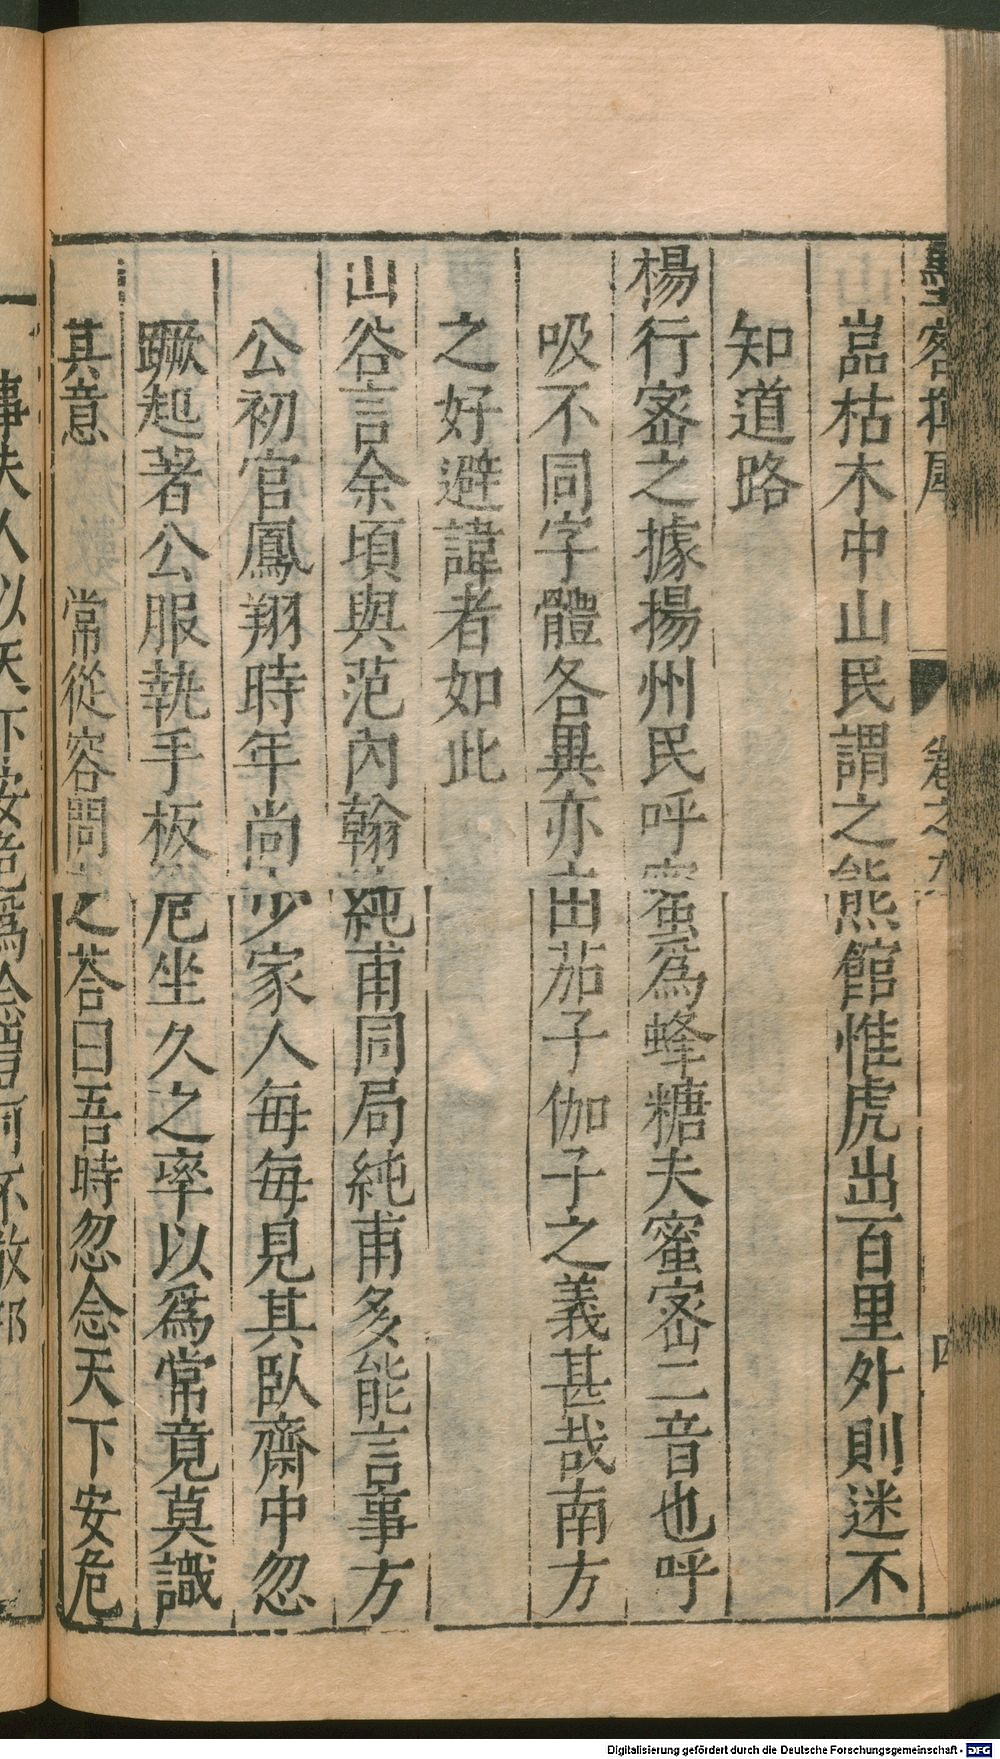 墨客揮犀 卷之九 四
嵓枯木中山民謂之熊館惟虎出百里外則迷不
知道路
楊行宻之據揚州民呼蜜爲蜂糖夫蜜宻二音也呼
吸不同字體各異亦由茄子伽子之義甚哉南方
之好避諱者如此
山谷言余頃與范内翰純甫同局純甫多能言事方
公初官鳳翔時年尚少家人每每見其臥齋中忽
蹶起著公服執手板危坐久之率以爲常竟莫識
其意 常從容問之荅曰吾時忽念天下安危
事夫人以天下安危爲念豈可不敬邪
Digitalisierung gefördert durch die Deutsche Forschungsgemeinschaft - DFG